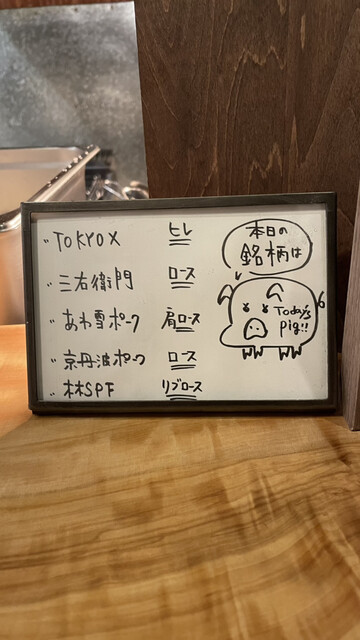 ・TOKYO X ヒレ
・三右衛門 ロース
・あわ雪ポーク 肩ロース
・京丹波ポーク ロース
・林SPF リブロース
本日の
銘柄は
Today's
pig!!